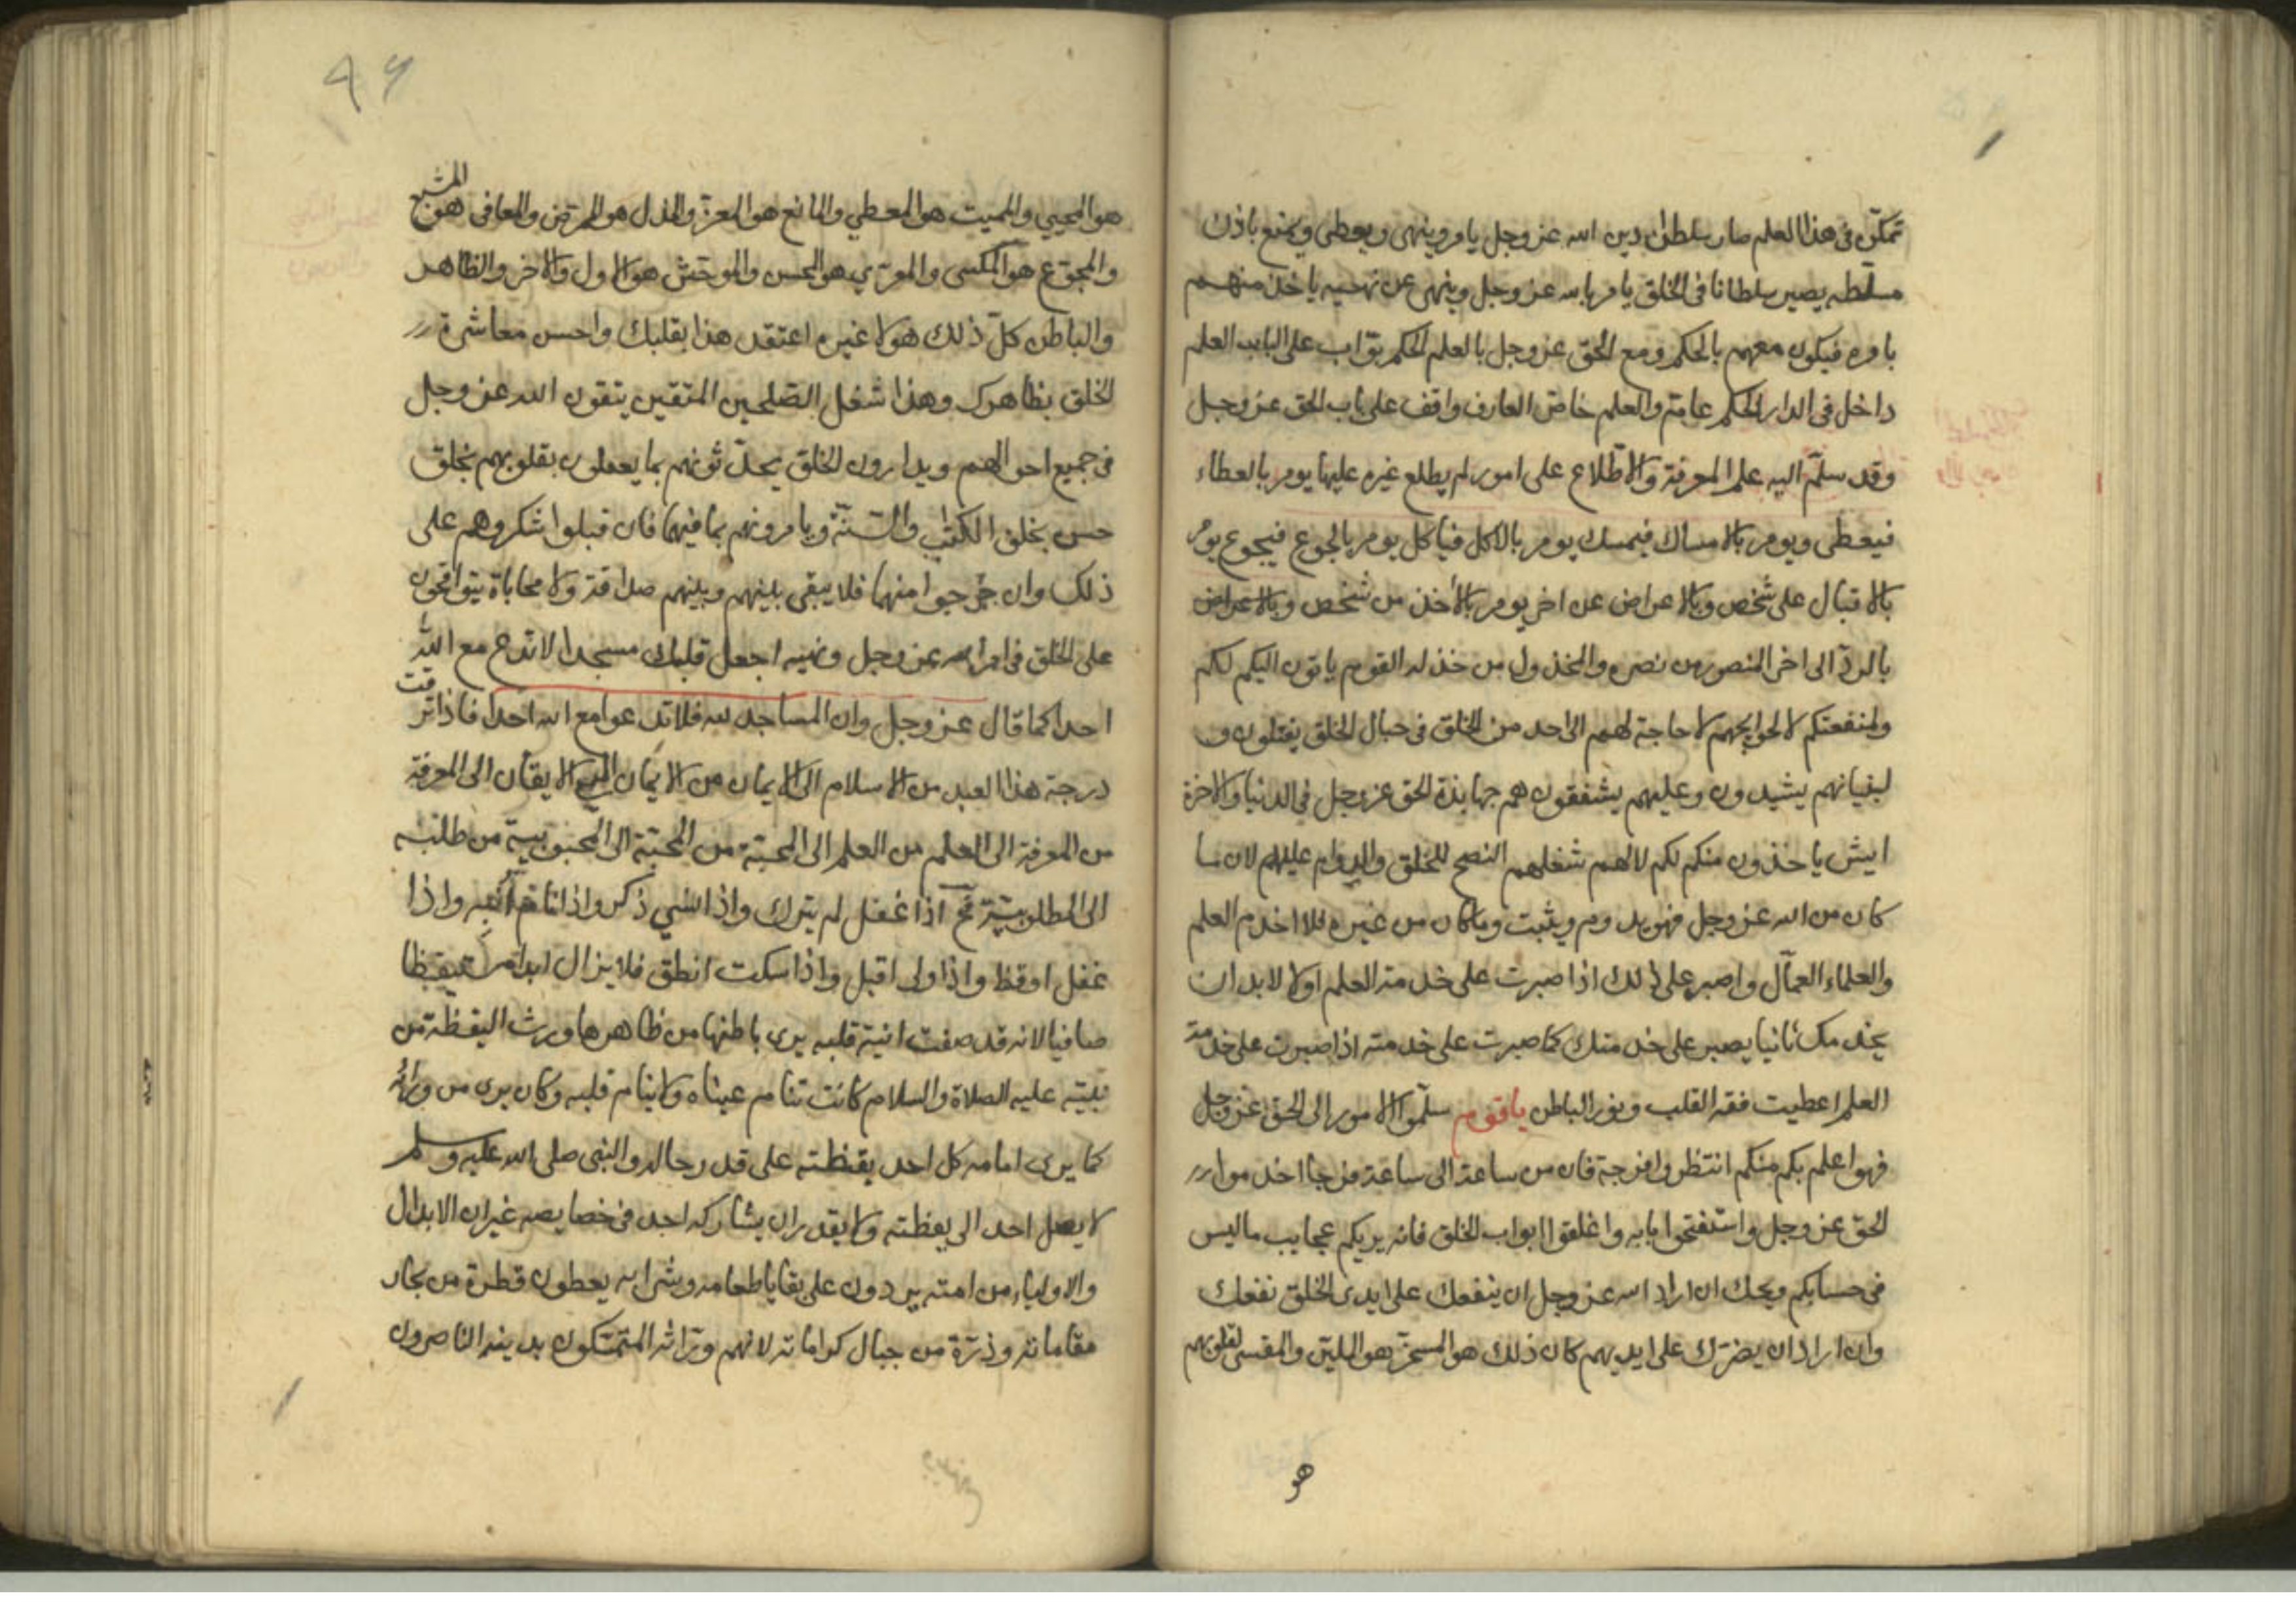 تمكّن فى هذا العلم صار سلطان دين الله عز وجل يامر وينهى ويعطى ويمنع باذن
مسلّطه يصير سلطانا فى الخلق يامر بامر الله عز وجل وينهى عن نهيه ياخذ منهم
بامره فيكون معهم بالحكم ومع الحق عز وجل بالعلم الحكم بوّاب على الباب العلم
داخل فى الدار الحكم عامّ والعلم خاصّ العارف واقف على باب الحق عز وجل
وقد سلّم اليه علم المعرفة والاطّلاع على امور لم يطلع غيره عليها يومر بالعطاء
فيعطى ويومر بالامساك فيمسك يومر بالاكل فياكل يومر بالجوع فيجوع يومر
بالاقبال على شخص وبالاعراض عن اخر يومر بالأخذ من شخص وبالاعراض
بالردّ الى اخر المنصور من نصره والمخذول من خذله القوم ياتون اليكم لكم
ولمنفعتكم لا لحوايجهم لا حاجة لهم الى احد من الخلق فى حبال الخلق يفتلون و
لبنيانهم يشيدون وعليهم يشفقون هم جهابذة الحق عز وجل فى الدنيا والاخرة
ايش ياخذون منكم لكم لا لهم شغلهم النصح للخلق والدوام عليهم لان ما
كان من الله عز وجل فهو يدوم ويثبت وما كان من غيره فلا اخدم العلم
والعلماء العمّال واصبر على ذلك اذا صبرت على خدمة العلم اولا لابد ان
يخدمك ثانيا يصبر على خدمتك كما صبرت على خدمته اذا صبرت على خدمة
العلم اعطيت فقه القلب ونور الباطن يا قوم سلّموا الامور الى الحق عز وجل
فهو اعلم بكم منكم انتظروا فرجه فان من ساعة الى ساعة فرجا اخدموا
الحق عز وجل واستفتحوا بابه واغلقوا ابواب الخلق فانه يريكم عجايب ما ليس
فى حسابكم ويحك ان اراد الله عز وجل ان ينفعك على ايدى الخلق نفعك
وان اراد ان يضرّك على ايديهم كان ذلك هو المسخّر هو المليّن والمقسى لقلوبهم
هو
٩٤
هو المحيي والمميت هو المعطي والمانع هو المعزّ والمذل هو الممرّض والمعافى هو المشبع
والمجوّع هو المكسى والمعرّي هو المحسن والموحّش هو الاول والاخر والظاهر
والباطن كلّ ذلك هو لا غيره اعتقد هذا بقلبك واحسن معاشرة
الخلق بظاهرك وهذا شغل الصّلحين المتقين يتقون الله عز وجل
فى جميع احوالهم ويدارون الخلق يحدّثونهم بما يعقلون بقلوبهم بخلق
حسن بخلق الكتٰب والسّنّة ويامرونهم بما فيهما فان قبلوا شكروهم على
ذلك وان خرجوا منهما فلا يبقى بينهم وبينهم صداقة ولا محاباة يتواقحون
على الخلق فى امر الله عز وجل ونهيه اجعل قلبك مسجدا لا تدع مع الله
احدا كما قال عز وجل وان المساجد لله فلا تدعوا مع الله احدا فاذا ترقت
درجة هذا العبد من الاسلام الى الايمان من الايمان الى الايقان الى المعرفة
من المعرفة الى العلم من العلم الى المحبّة من المحبّة الى المحبوبية من طلبه
الى المطلوبيّة تح اذا غفل لم يترك واذا نسي ذكر واذا نام أنبه واذا
غفل اوقظ واذا ولى اقبل واذا سكت انطق فلا يزال ابدا مستيقظا
صافيا لانه قد صفت انية قلبه يرى باطنها من ظاهرها ورث اليقظة من
نبيّه عليه الصلاة والسلام كانت تنام عيناه ولا ينام قلبه وكان يرى من ورائه
كما يرى امامه كل احد يقظته على قدر حاله والنبى صلى الله عليه وسلم
لا يصل احد الى يقظته ولا يقدر ان يشاركه احد فى خصايصه غير ان الابدال
والاولياء من امته يردون على بقايا طعامه وشرابه يعطون قطرة من بحار
مقاماته وذرّة من جبال كراماته لانهم ورّاثه المتمسّكون بدينه الناصرون